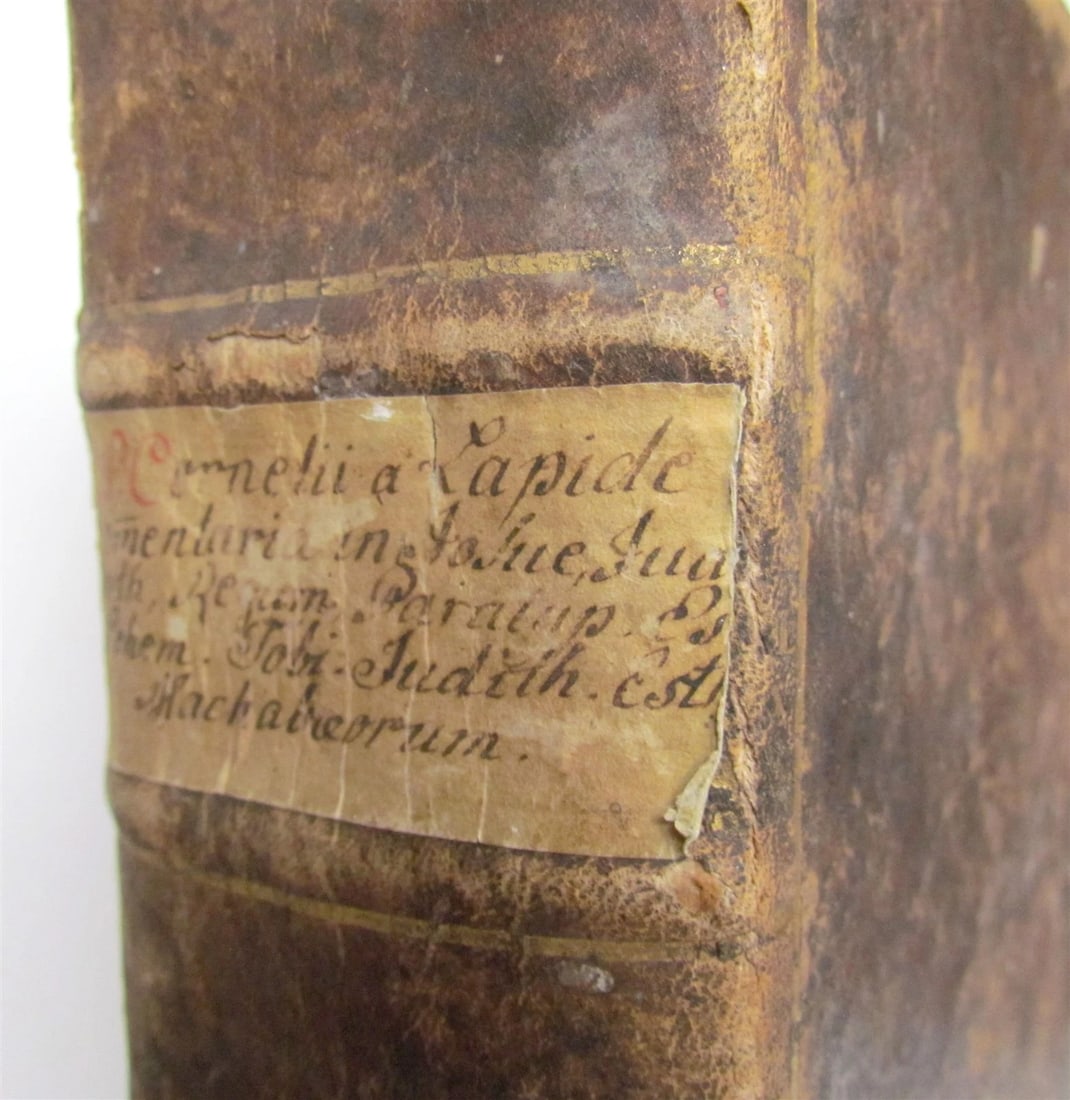 Cornelii a Lapide
mentaria in Josue, Jud
th, Regum, Paralip. Es
ehem. Tobi. Judith. Esth
Machabæorum.